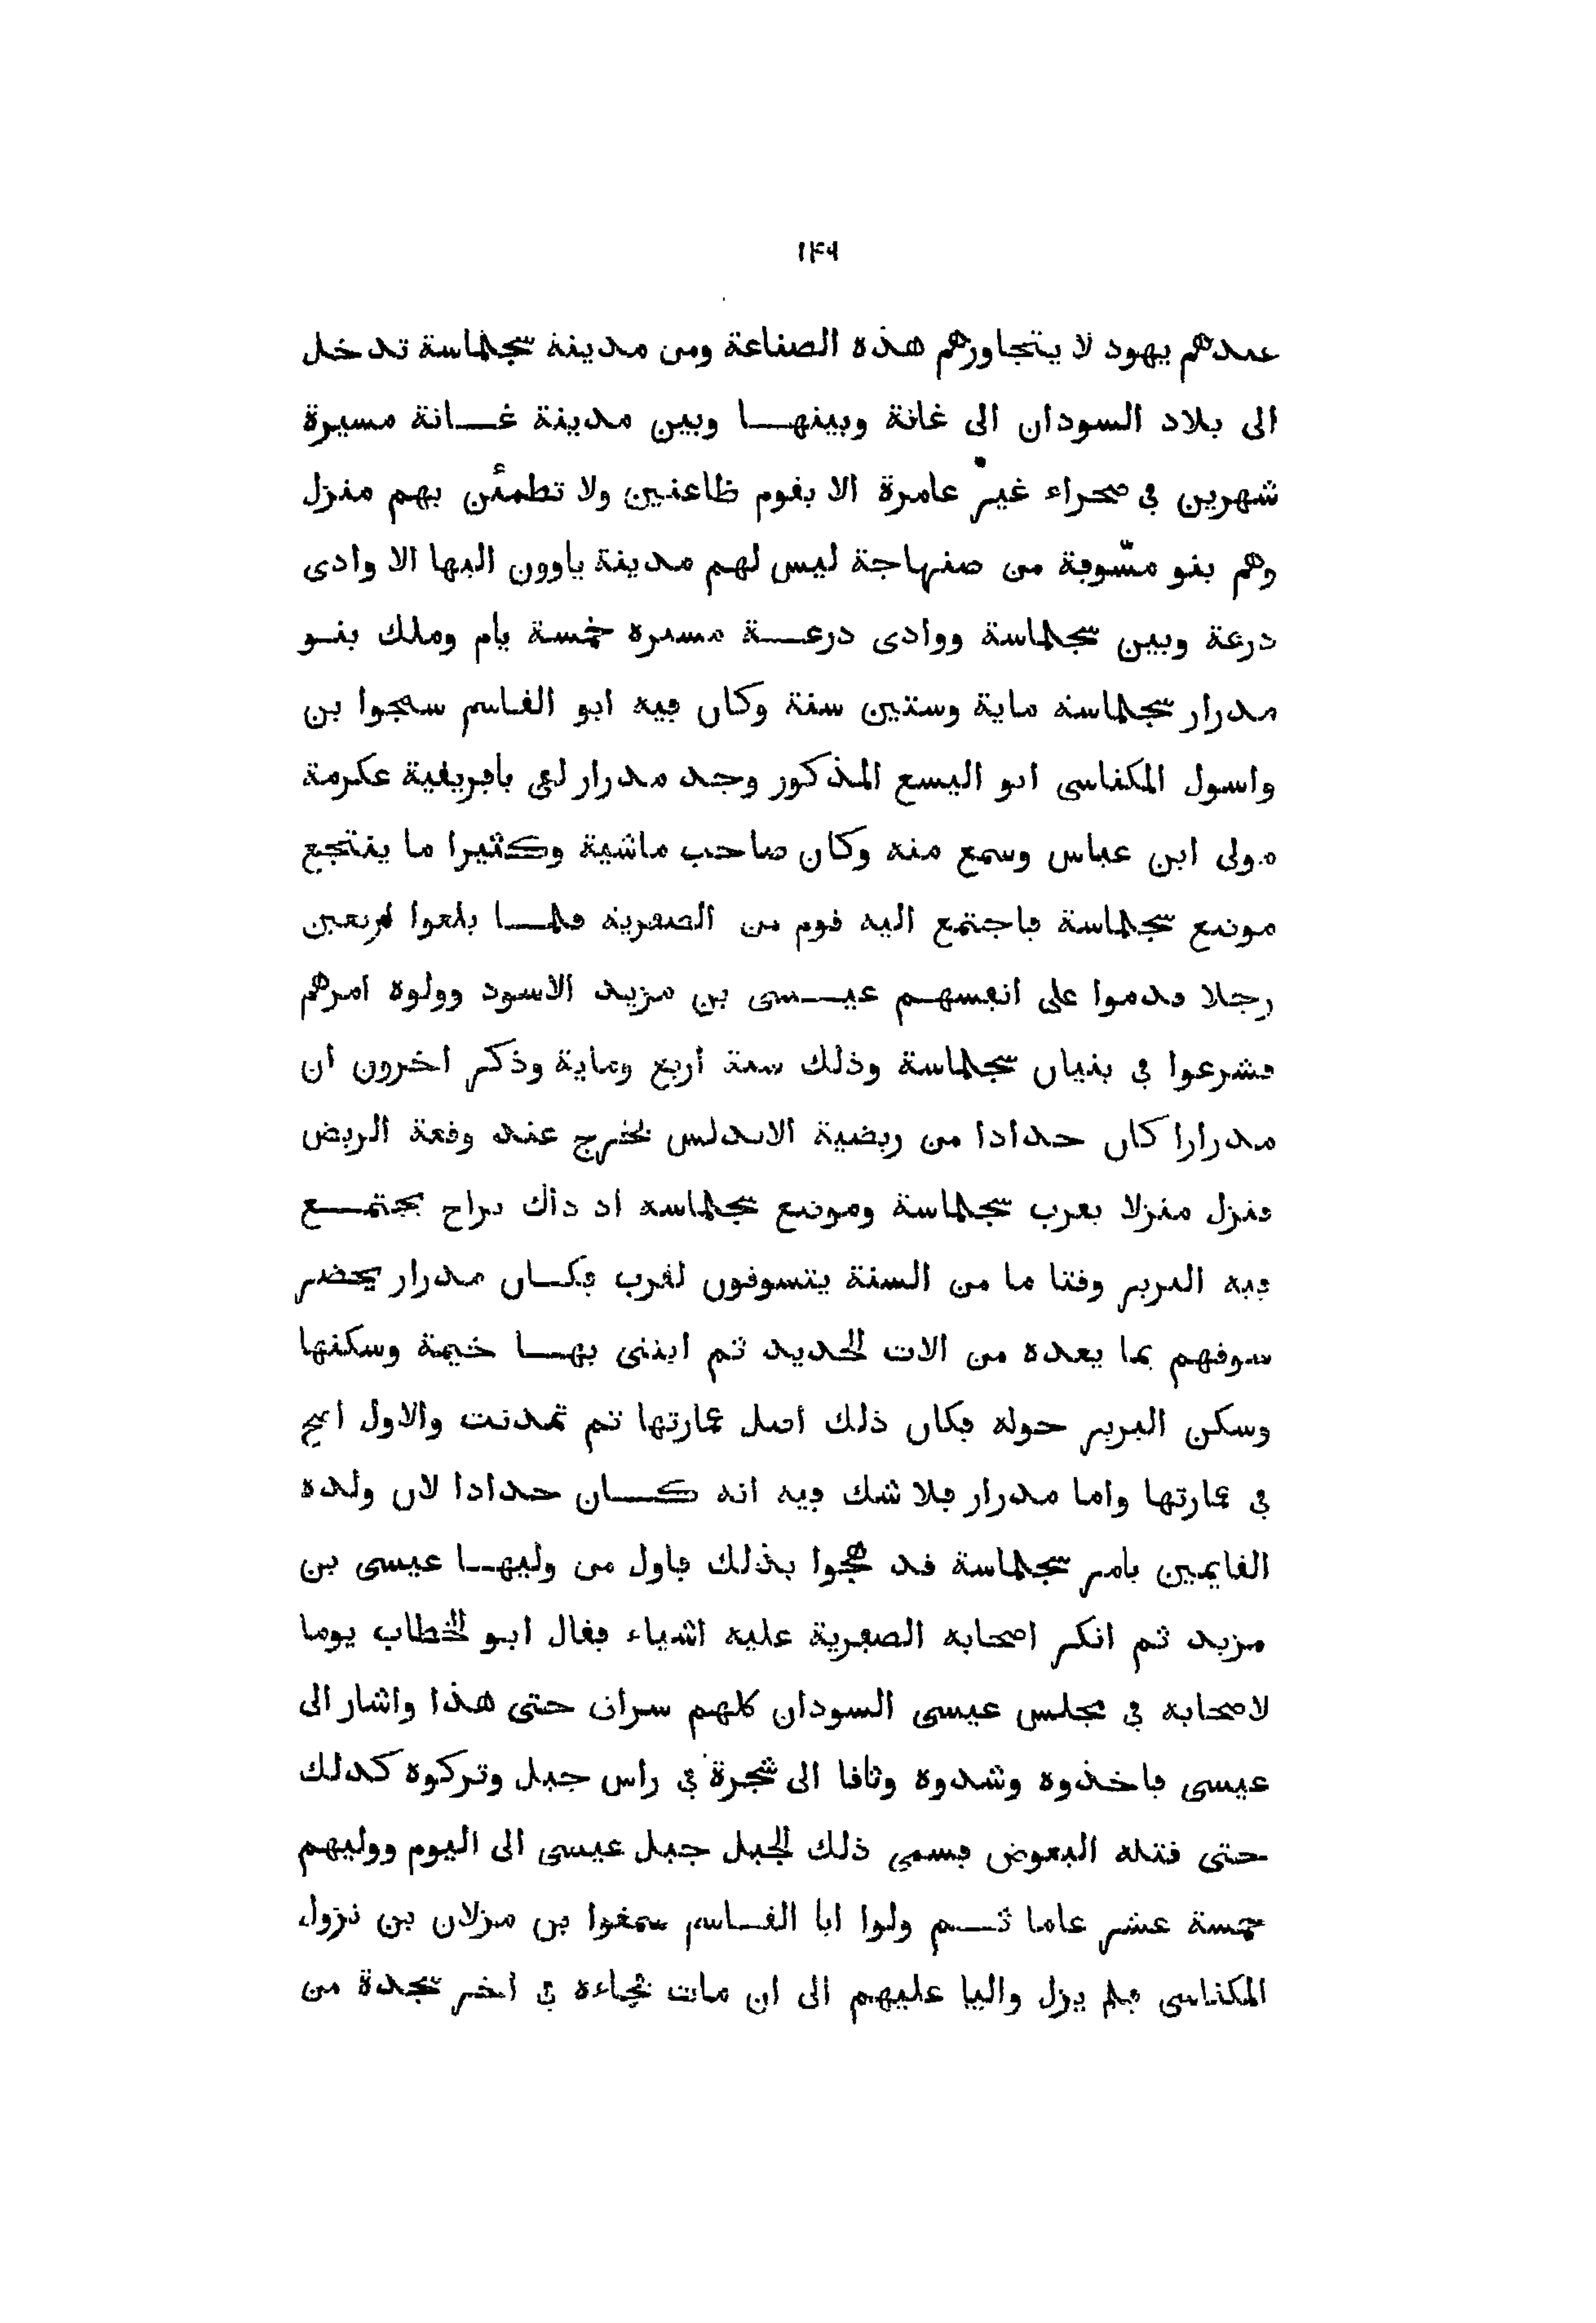 ١٤٩
عندهم يهود لا يتجاوزهم هذه الصناعة ومن مدينة سجلماسة تدخل
الى بلاد السودان الى غانة وبينها وبين مدينة غانة مسيرة
شهرين في صحراء غير عامرة الا بقوم ظاعنين ولا تطمئن بهم منزل
وهم بنو مسّوفة من صنهاجة ليس لهم مدينة ياوون اليها الا وادى
درعة وبين سجلماسة ووادى درعة مسيرة خمسة يام وملك بنو
مدرار سجلماسة ماية وستين سنة وكان فيه ابو القاسم سمجوا بن
واسول المكناسى ابو اليسع المذكور وجد مدرار لقى بافريقية عكرمة
مولى ابن عباس وسمع منه وكان صاحب ماشية وكثيرا ما ينتجع
موضع سجلماسة فاجتمع اليه قوم من الصفرية فلما بلغوا اربعين
رجلا قدموا على انفسهم عيسى بن مزيد الاسود وولوه امرهم
فشرعوا في بنيان سجلماسة وذلك سنة أربع وماية وذكر اخرون ان
مدرارا كان حدادا من ربضية الاندلس فخرج عند وقعة الربض
فنزل منزلا بقرب سجلماسة وموضع سجلماسة اذ ذاك براح يجتمع
فيه البربر وقتا ما من السنة يتسوقون لقرب فكان مدرار يحضر
سوقهم بما يعده من الات الحديد ثم ابتنى بها خيمة وسكنها
وسكن البربر حوله فكان ذلك أصل عمارتها ثم تمدنت والاول اصح
في عمارتها واما مدرار فلا شك فيه انه كان حدادا لان ولده
القايمين بامر سجلماسة قد هجوا بذلك فاول من وليها عيسى بن
مزيد ثم انكر اصحابه الصفرية عليه اشياء فقال ابو الخطاب يوما
لاصحابه في مجلس عيسى السودان كلهم سراق حتى هذا واشار الى
عيسى فاخذوه وشدوه وثاقا الى شجرة في راس جبل وتركوه كذلك
حتى قتله البعوض فسمى ذلك الجبل جبل عيسى الى اليوم ووليهم
خمسة عشر عاما ثم ولوا ابا القاسم سمغوا بن مزلان بن نزول
المكناسى فلم يزل واليا عليهم الى ان مات فجاءة في اخر سجدة من